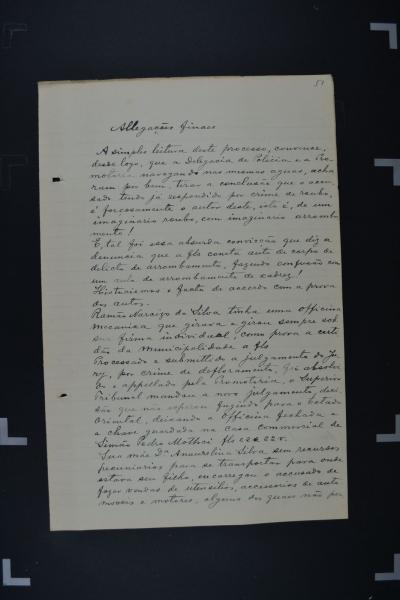 51
Allegações finaes
A simples leitura deste processo, convence,
desde logo, que a Delegacia de Policia e a Pro
motoria navegando nas mesmas aguas, acha
ram por bem, tirar a conclusão que o accu
sado tendo já respondido por crime de roubo,
é forçosamente o autor deste, isto é, de um
imaginario roubo, com imaginario arromba
mento!
E, tal foi essa absurda convicção que diz a
denuncia que a fls consta auto de corpo de
delicto de arrombamento, fazendo confusão com
um auto de arrombamento de xadrez!
Historiemos o facto de accordo com a prova
dos autos.
Ramão Narcizo da Silva tinha uma officina
mecanica que girava e girou sempre sob
sua firma individual, como prova a certi
dão da Municipalidade a fls
Processado e submettido a julgamento do Ju
ry, por crime de defloramento, foi absolvi
do e appellada pela Promotoria, o Superior
Tribunal mandou a novo julgamento, deci
são que não esperou fugindo para o Estado
Oriental, deixando a Officina fechada e
a chave guardada na casa commercial de
Simão Pedro fls
Sua mãe Dª Silva sem recursos
pecuniarios para se transportar para onde
estava seu filho, encarregou o accusado de
fazer vendas de utensilios, accessorios de auto
moveis e motores, alguns dos quaes não per